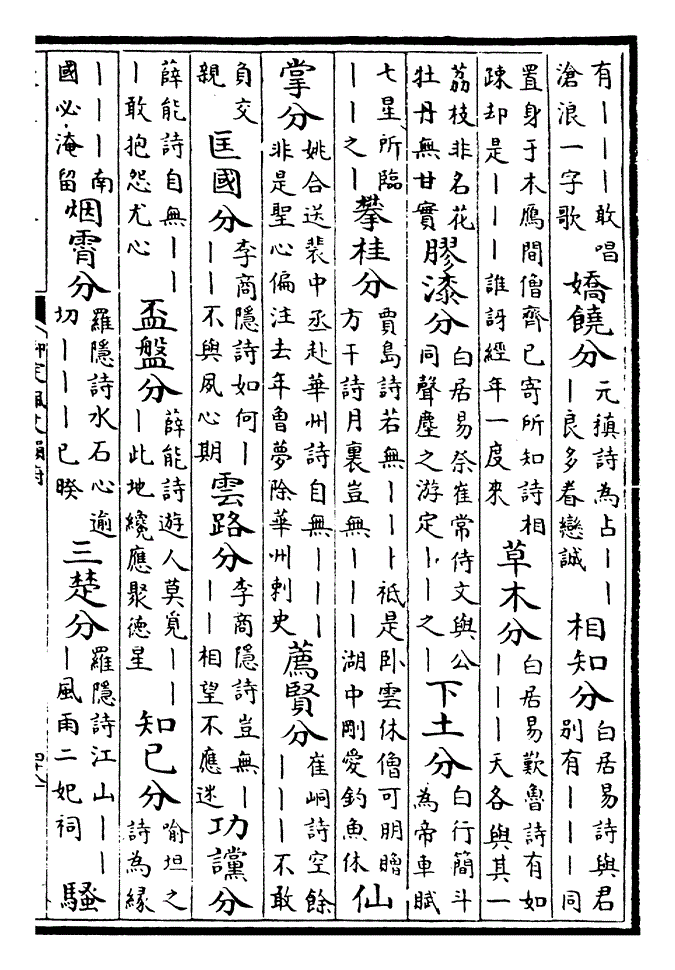 有｜｜｜敢唱滄浪一字歌 嬌饒分 元稹詩為占｜｜｜良多眷戀誠 相知分 白居易詩與君別有｜｜｜同
置身于木鴈間僧齊已寄所知詩相疎却是｜｜｜誰訝經年一度來 草木分 白居易歎魯詩有如｜｜｜天各與其一
荔枝非名花牡丹無甘實 膠漆分 白居易祭崔常侍文與公同聲塵之游定｜｜之｜ 下土分 白行簡斗為帝車賦
七星所臨｜｜之｜ 攀桂分 賈島詩若無｜｜｜祗是卧雲休僧可朋贈方干詩月裏豈無｜｜｜湖中剛愛釣魚休 仙
掌分 姚合送裴中丞赴華州詩自無｜｜｜非是聖心偏注去年魯夢除華州刺史 薦賢分 崔峒詩空餘｜｜｜不敢
負交親 匡國分 李商隱詩如何｜｜｜不與夙心期 雲路分 李商隱詩豈無｜｜｜相望不應迷 功讜分
薛能詩自無｜｜｜敢抱怨尤心 盃盤分 薛能詩遊人莫覓｜｜｜此地纔應聚德星 知已分 喻坦之詩為緣
｜｜｜南國必淹留 烟霄分 羅隱詩水石心逾切｜｜｜已暌 三楚分 羅隱詩江山｜｜｜風雨二妃祠 騷